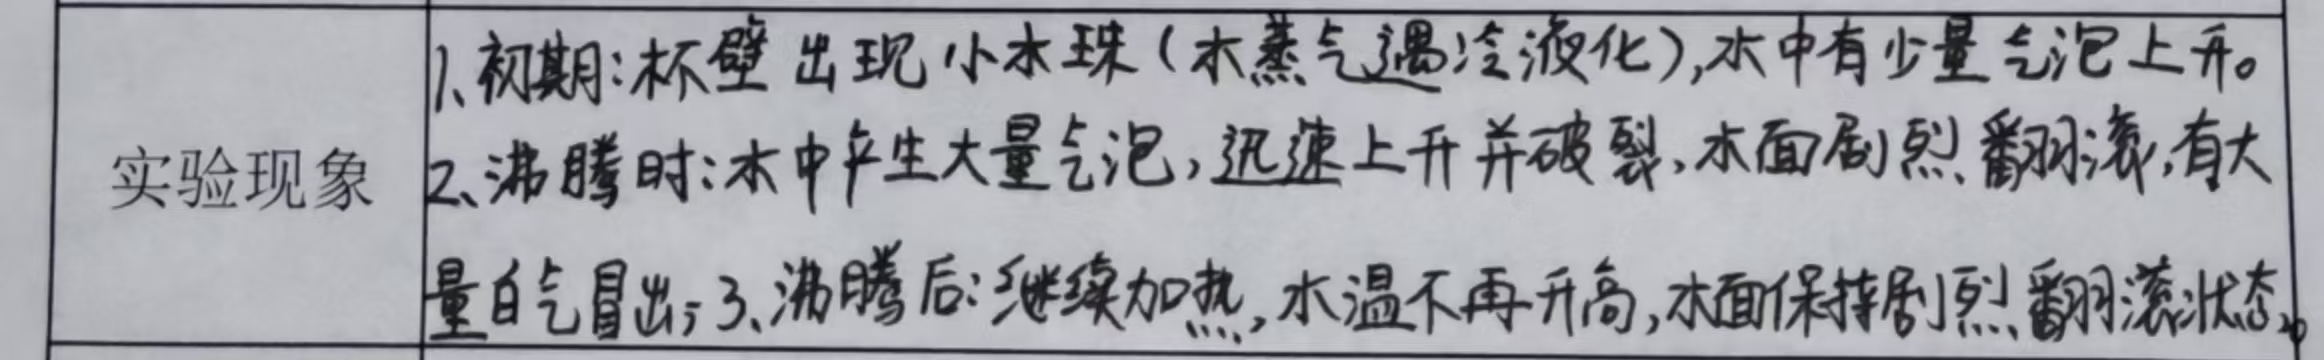 实验现象
1、初期：杯壁出现小水珠（水蒸气遇冷液化），水中有少量气泡上升。
2、沸腾时：水中产生大量气泡，迅速上升并破裂，水面剧烈翻滚，有大
量白气冒出；3、沸腾后：继续加热，水温不再升高，水面保持剧烈翻滚状态。